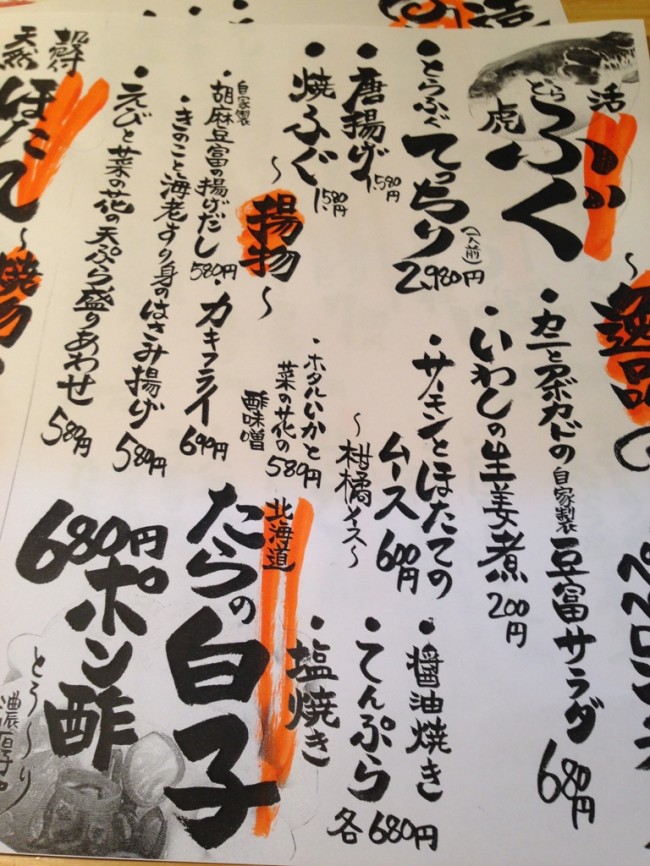 活
どら
虎
ふぐ
・とらふぐてっちり(一人前)
2,980円
・唐揚げ
1,580円
・焼ふぐ
1,580円
〜揚物〜
・自家製
胡麻豆富の揚げだし
580円
・きのこと海老すり身のはさみ揚げ
580円
・えびと菜の花の天ぷら盛りあわせ
580円
・カキフライ
690円
殻付
天然
ほたて
〜焼物〜
〜逸品〜
・カニとアボカドの自家製豆富サラダ
680円
・いわしの生姜煮
200円
・サーモンとほたての
ムース 600円
〜柑橘ソース〜
・ホタルいかと
菜の花の
酢味噌
580円
北海道
たらの白子
ポン酢
680円
とろ〜り
濃厚
・醤油焼き
・てんぷら
・塩焼き
各680円